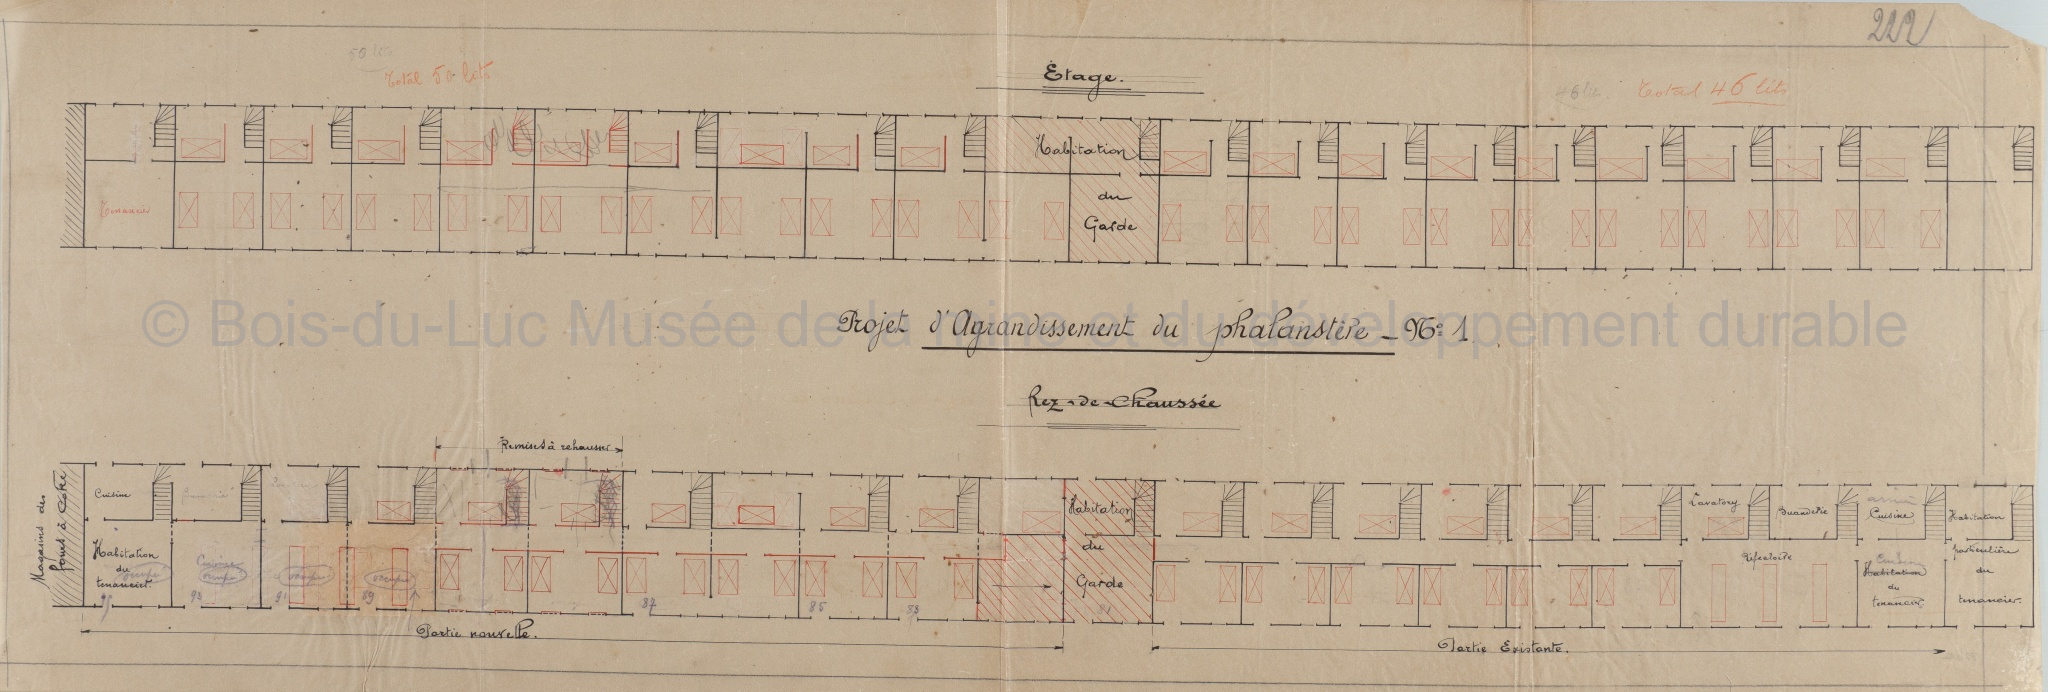 222
50 lits
Total 50 lits
Etage.
46 lits.
Total 46 lits
Habitation
du
Garde
Tenancier
© Bois-du-Luc Musée de la mine et du développement durable
Projet d'Agrandissement du phalanstère - No 1
Rez-de-Chaussée
Remises à rehausser
Magasins des
fours à Coke
Cuisine
Habitation
du
tenancier.
occupé
Cuisine
occupé
occupé
occupé
95
93
91
89
87
85
83
81
Habitation
du
Garde
Lavatory
Buanderie
Réfectoire
Cuisine
Habitation
du
tenancier
Habitation
particulière
du
tenancier.
Partie nouvelle.
Partie Existante.